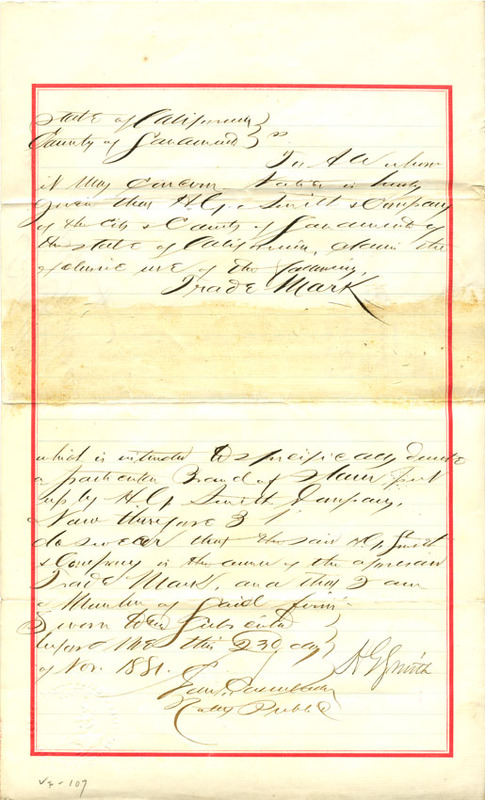 State of California }
County of Sacramento } ss
To All whom
it May Concern. Notice is hereby
given that H. G. Smith & Company
of the City & County of Sacramento
the State of California, claim the
exclusive use of the following
Trade Mark
which is intended to specifically denote
a particular Brand of Flour put
up by H. G. Smith & Company,
Now therefore I
do swear that the said H. G. Smith
& Company is the owner of the aforesaid
Trade Mark, and that I am
a Member of Said firm
Sworn to and Subscribed }
before me this 23d day }
of Nov. 1881.
H G Smith
Notary Public
V2-109